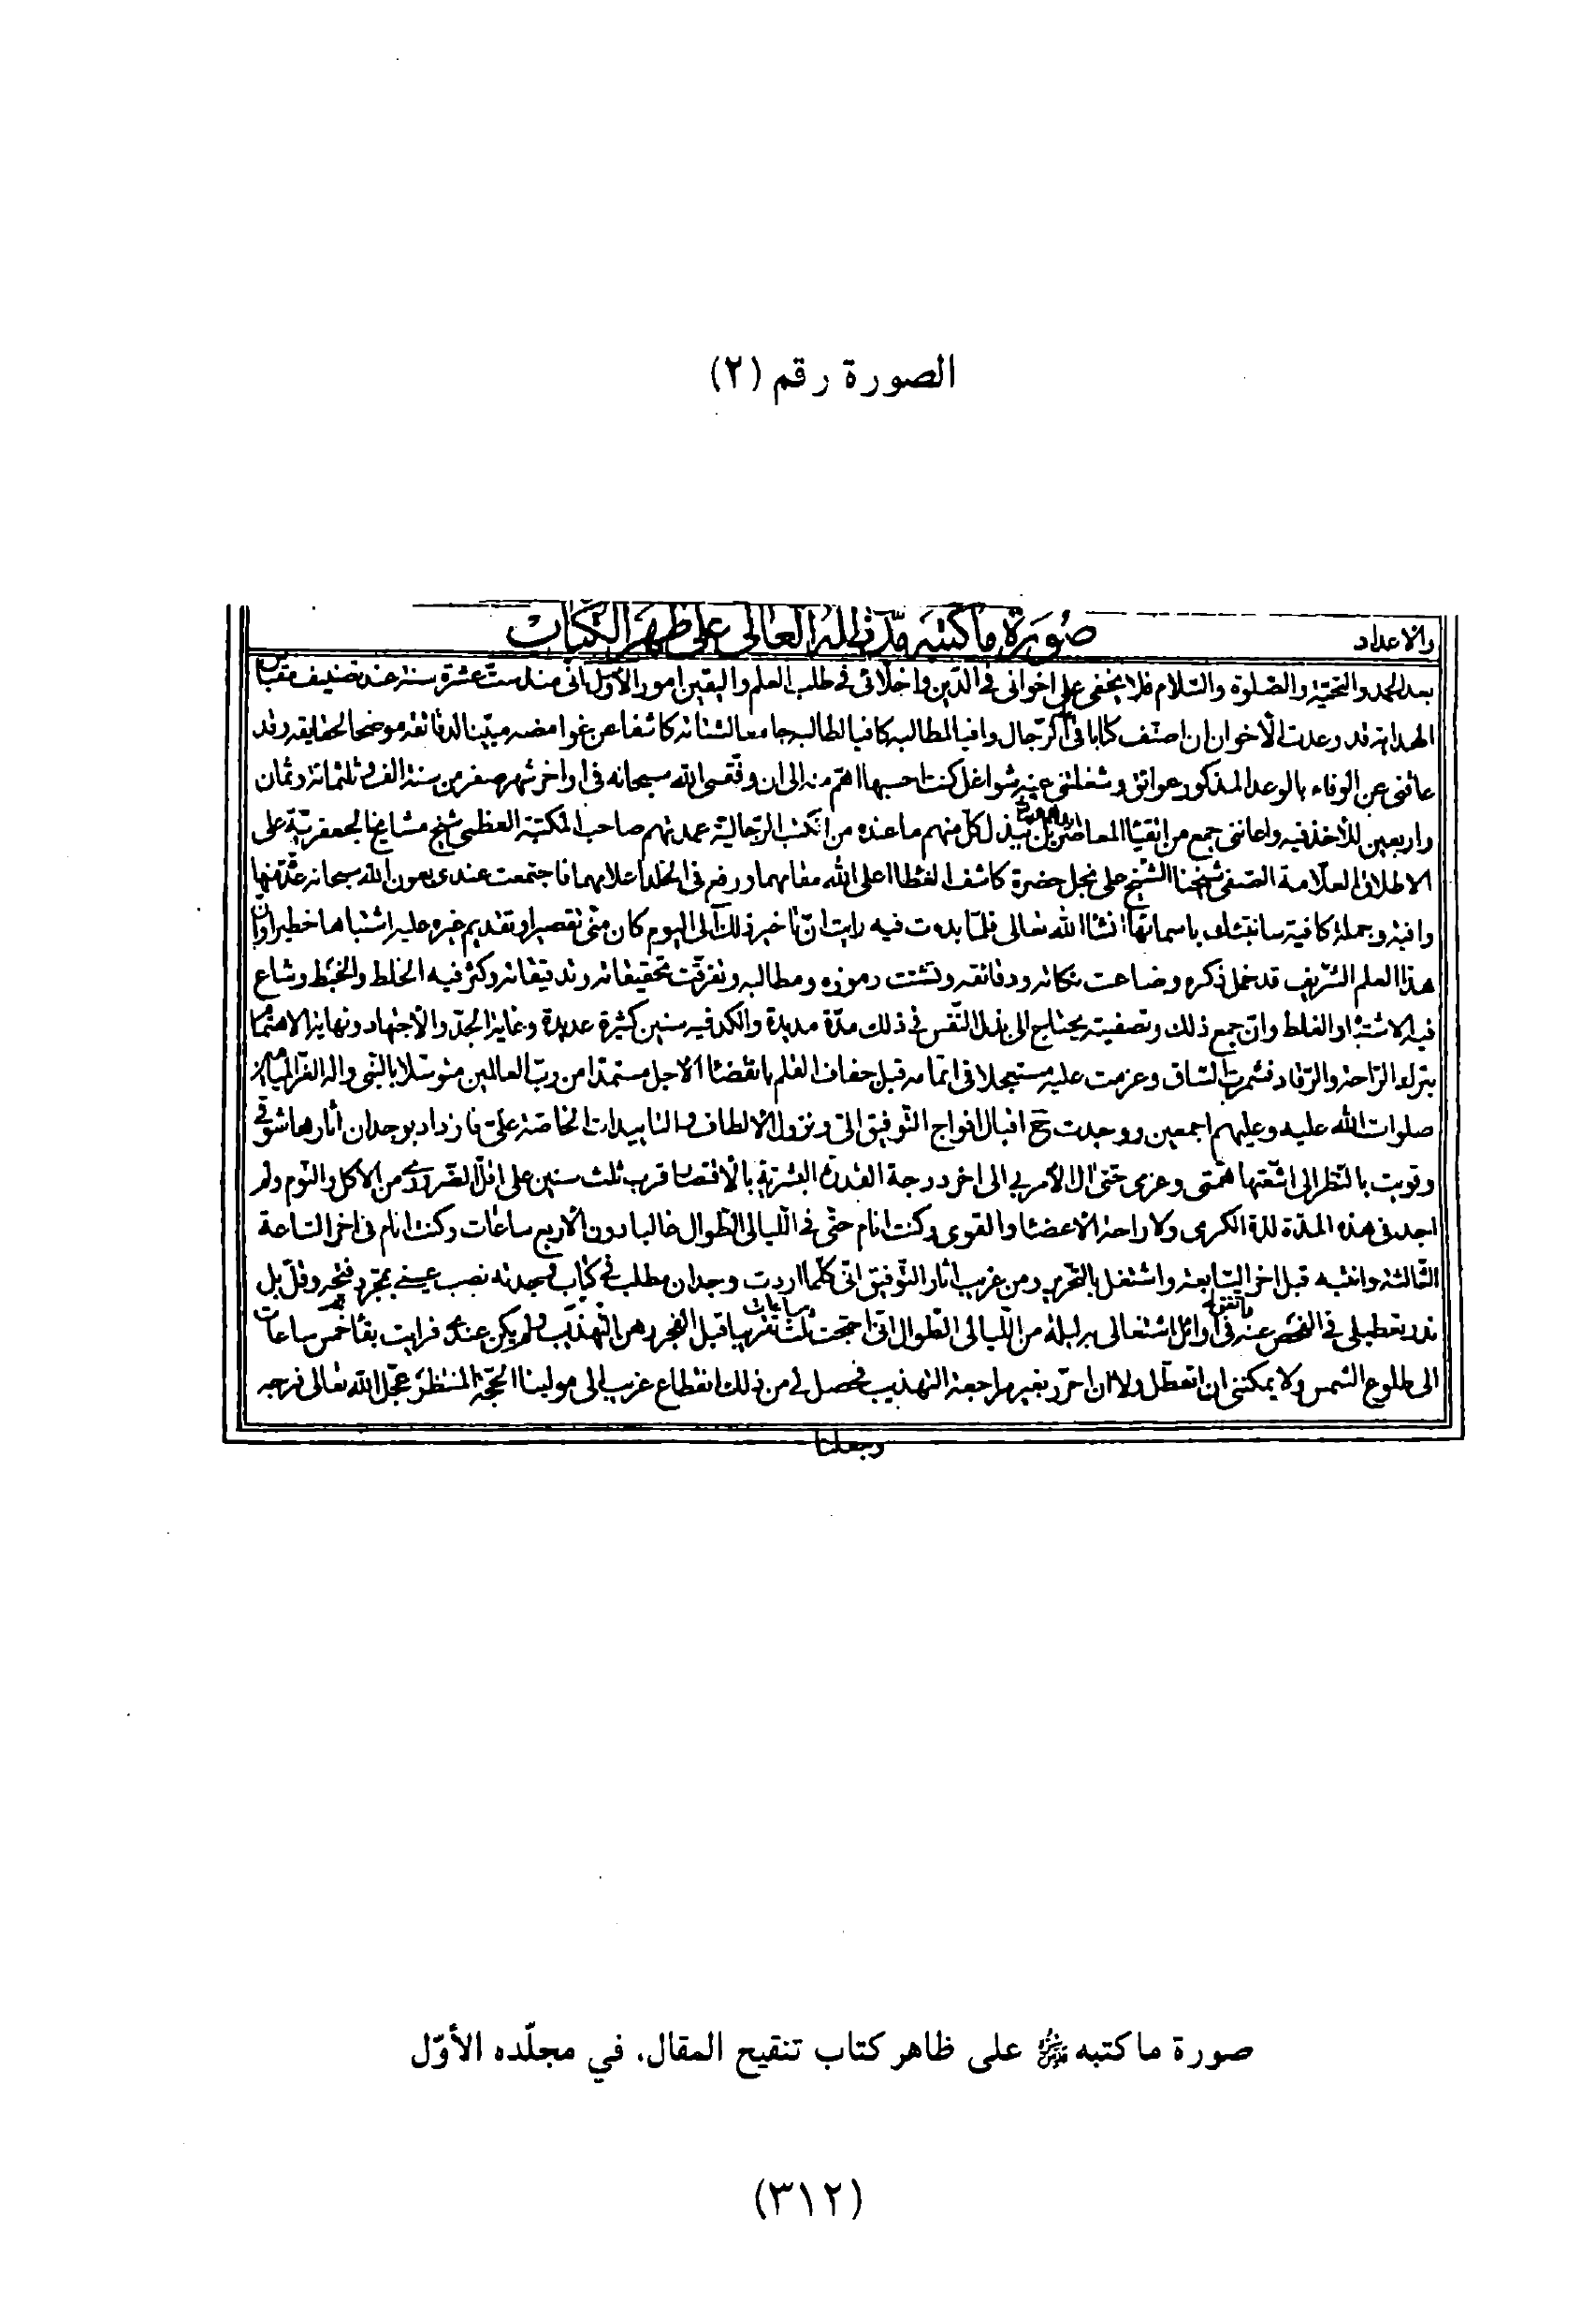 الصورة رقم (٢)
والاعداد
صورة ما كتبه مدّ ظله العالى على ظهر الكتاب
بعد الحمد والتحيّة والصّلوة والسّلام فلا يخفى على اخوانى فى الدّين واخلّائى فى طلب العلم واليقين امور الاوّل انّى منذ ستّ عشرة سنة عند تصنيف مقباس
الهداية قد وعدت الاخوان ان اصنّف كتابا فى الرّجال وافيا لمطالبه كافيا لطالبه جامعا لشتاته كاشفا عن غوامضه مبيّنا لدقائقه موضحا لحقايقه وقد
عاقنى عن الوفاء بالوعد المذكور عوائق وشغلتنى عنه شواغل كنت احسبها اهمّ منه الى ان وفّقنى الله سبحانه فى اواخر شهر صفر من سنة الف وثلثمائة وثمان
واربعين للأخذ فيه واعاننى جمع من اتقياء المعاصرين ببذل كلّ منهم ما عنده من الكتب الرّجالية عمدتهم صاحب المكتبة العظمى شيخ مشايخ الجعفريّة على
الاطلاق العلّامة الصّفى شيخنا الشّيخ على نجل حضرة كاشف الغطا اعلى الله مقامهما ورفع فى الخلد اعلامهما فاجتمعت عندى بعون الله سبحانه عدّة منها
وافية وجملة كافية سانبّئك باسمائها انشاء الله تعالى فلمّا بدءت فيه رايت انّ تاخير ذلك الى اليوم كان منّى تقصيرا وتقديم غيره عليه اشتباها خطيرا وانّ
هذا العلم الشّريف قد خمل ذكره وضاعت نكاته ودقائقه وتشتت رموزه ومطالبه وتفرّقت تحقيقاته وتدقيقاته وكثر فيه الخلط والخبط وشاع
فيه الاشتباه والغلط وانّ جمع ذلك وتصفيته يحتاج الى بذل النّفس فى ذلك مدّة مديدة والكدّ فيه سنين كثيرة عديدة وغاية الجدّ والاجتهاد ونهاية الاهتمام
بترك الرّاحة والرّقاد فشمّرت السّاق وعزمت عليه مستعجلا فى اتمامه قبل جفاف القلم بانقضاء الاجل مستمدّا من ربّ العالمين متوسّلا بالنّبى واله الغرّ الميامين
صلوات الله عليه وعليهم اجمعين ووجدت ح اقبال افواج التّوفيق الىّ ونزول الالطاف والتاييدات الخاصّة علىّ فازداد بوجدان اثارها شوقى
وقويت بالنّظر الى اشعّتها همّتى وعزمى حتّى ال الامر بى الى اخر درجة القدرة البشريّة بالاقتصار قرب ثلث سنين على اقلّ الضّرورى من الاكل والنّوم ولم
اجد فى هذه المدّة لذّة الكرى ولا راحة الاعضاء والقوى وكنت انام حتّى فى اللّيالى الطّوال غالبا دون الاربع ساعات وكنت انام فى اخر السّاعة
الثّالثة وانتبه قبل اخر السّابعة واشتغل بالتّحرير ومن غريب اثار التّوفيق انّى كلّما اردت وجدان مطلب فى كتاب وجدته نصب عينى بمجرّد فتحه وقلّ بل
ندر تعطيلى فى الفحص عنه واتّفق لى فى اوائل اشتغالى به ليلة من اللّيالى الطّوال انّى احتجت ثلث ساعات تقريبا قبل الفجر الى من التّهذيب ولم يكن عندى فرايت بقاء خمس ساعات
الى طلوع الشّمس ولا يمكننى ان اتعطّل ولا ان احرّر بغير مراجعة التّهذيب فحصل لى من ذلك انقطاع غريب الى مولينا الحجّة المنتظر عجّل الله تعالى فرجه
وجعلنا
صورة ما كتبه على ظاهر كتاب تنقيح المقال، في مجلّده الأوّل
(٣١٢)